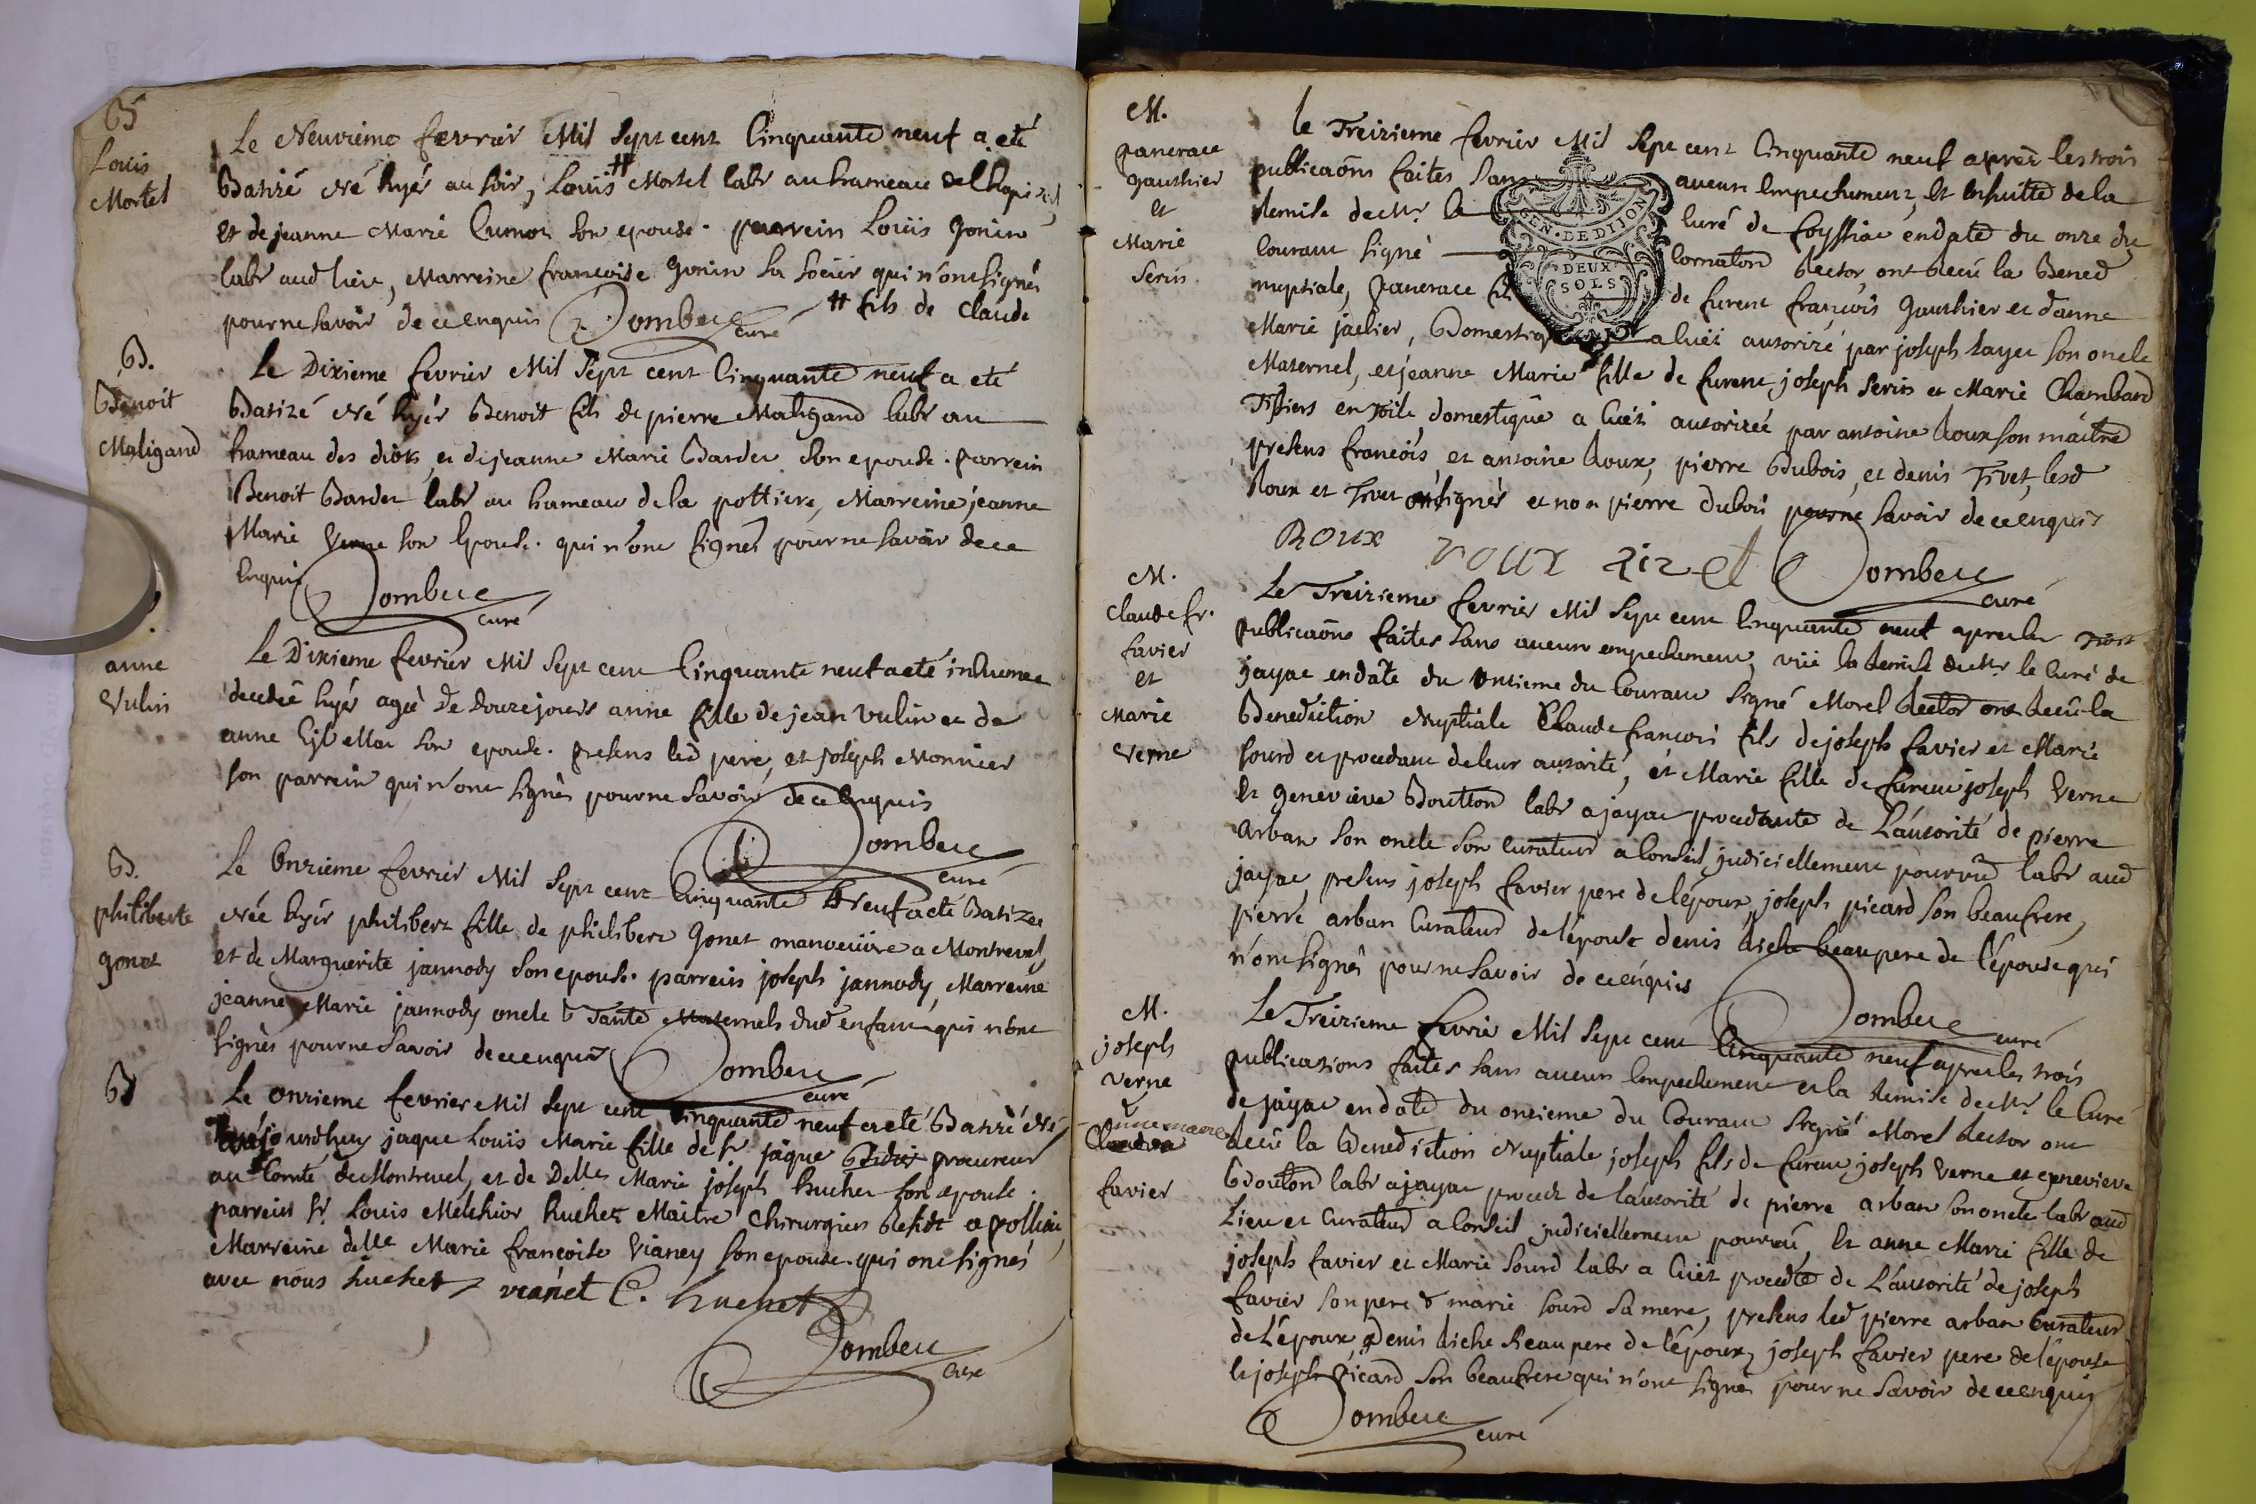 B
Louis
Mortel
Le Neuvieme fevrier Mil Sept cent Cinquante neuf a eté
Batizé Né hyér au soir, Louis # Mortel labr au hameau de lhopital
et de jeanne Marie Cunot son epouse. parrein Louis gonin
labr aud lieu, Marreine francoise gonin sa soeur qui n'ont signés
pour ne savoir de ce enquis Dombeuc curé # fils de Claude
B.
Benoit
Maligand
Le Dixieme fevrier Mil Sept cent Cinquante neuf a eté
Batizé Né hyér Benoit fils de pierre Maligand labr au
hameau des diots, et de jeanne Marie Bardet son epouse. parrein
Benoit Bardet labr au hameau de la pottiere, Marreine jeanne
Marie Verne son Epouse. qui n'ont signés pour ne savoir de ce
Enquis Dombeuc
curé
anne
Vulin
Le Dixieme fevrier Mil Sept cent Cinquante neuf a eté inhumee
decedeé hyér ageé De Douze jours anne fille de jean Vulin et de
anne son epouse. presens led pere, et joseph Monnier
son parrein qui n'ont signés pour ne savoir de ce Enquis
Dombeuc
curé
B.
philiberte
gonet
Le Onzieme fevrier Mil Sept cent Cinquante Neuf a eté Batizee
Née hyér philibert fille de philibert gonet manoeuvre a Montrevel
et de Marguerite jannody son epouse. parrein joseph jannody, Marreine
jeanne Marie jannody oncle & Tante Maternels dud enfant qui n'ont
signés pour ne savoir de ce enquis Dombeuc
curé
B
Le onzieme fevrier Mil Sept cent Cinquante neuf a eté Batizé Né
aujourdhuy jaque Louis Marie fille de Sr jaque procureur
au Comté de Montrevel, et de Delle Marie joseph huchet son epouse.
parrein Sr Louis Melchior huchet Maitre Chirurgien Residt a polliac,
Marreine delle Marie françoise Vianey son epouse. qui ont signés
avec nous huchet vianet C. huchet
Dombeuc
curé
M.
pancrace
gauthier
et
Marie
Serin
le Treizieme fevrier Mil Sept cent Cinquante neuf aprez les trois
publicaôns faites Sans aucun Empechement, Et Ensuitte de la
Remise de Mr. le Curé de foyssiac en date du onze du
Courant Signé Cornaton Rector ont Recu la Bened
nuptiale, pancrace fils de furent françois gauthier et d'anne
GEN. DE DIJON
DEUX
SOLS
Marie jaclier, Domestique a Cuet autorizé par joseph Rayer son oncle
Maternel, et jeanne Marie fille de furent joseph Serin et Marie Chambard
Tissiers en Toile, domestique a Cuet autorizée par antoine Roux son maitre
presens francois, et antoine Roux, pierre Dubois, et denis Tivet, lesd
Roux et Tivet ont signés et non pierre dubois pour ne savoir de ce enquis
Roux roux Dombeuc
curé
M.
Claude fr.
favier
et
Marie
Verne
Le Treizieme fevrier Mil Sept cent Cinquante neuf apres les trois
publicaôns faites sans aucun empechement, vüe la Remise de Mr. le Curé de
jayac en date du Onzieme du Courant Signé Morel Rector ont Recu la
Benediction Nuptiale Claude francois fils de joseph favier et Marie
Sourd et procedant de leur autorité, et Marie fille de furent joseph Verne
Et genevieve Boutton labr a jayac procedante de L'autorité de pierre
arban son oncle son curateur a Conseil judiciellement pourvû labr aud
jayac, presens joseph favier pere de l'époux, joseph picard son beaufrere,
pierre arban Curateur de l'épouse denis Riche beaupere de l'épouse qui
n'ont signés pour ne savoir de ce enquis
Dombeuc
curé
M.
joseph
Verne
&
anne marie
favier
Le Treizieme fevrié Mil Sept cent Cinquante neuf apres les trois
publicasions faites sans aucun Empechement et la Remise de Mr. le Curé
de jayac en date du onzieme du Courant Signé Morel Rector ont
Recu la Benediction Nuptiale joseph fils de furent joseph Verne et genevieve
Boutton labr a jayac procedt de l'autorité de pierre arban son oncle labr aud
Lieu et Curateur a Conseil judiciellement pourvû, Et anne Marie fille de
joseph favier et Marie Sourd labr a Cuet procedte de L'autorité de joseph
favier son pere & marie Sourd Sa mere, presens led pierre arban Curateur
de L'époux, Denis Riche Beaupere de l'époux, joseph favier pere de l'épouse
Et joseph Picard son beaufrere qui n'ont signés pour ne savoir de ce enquis
Dombeuc
curé